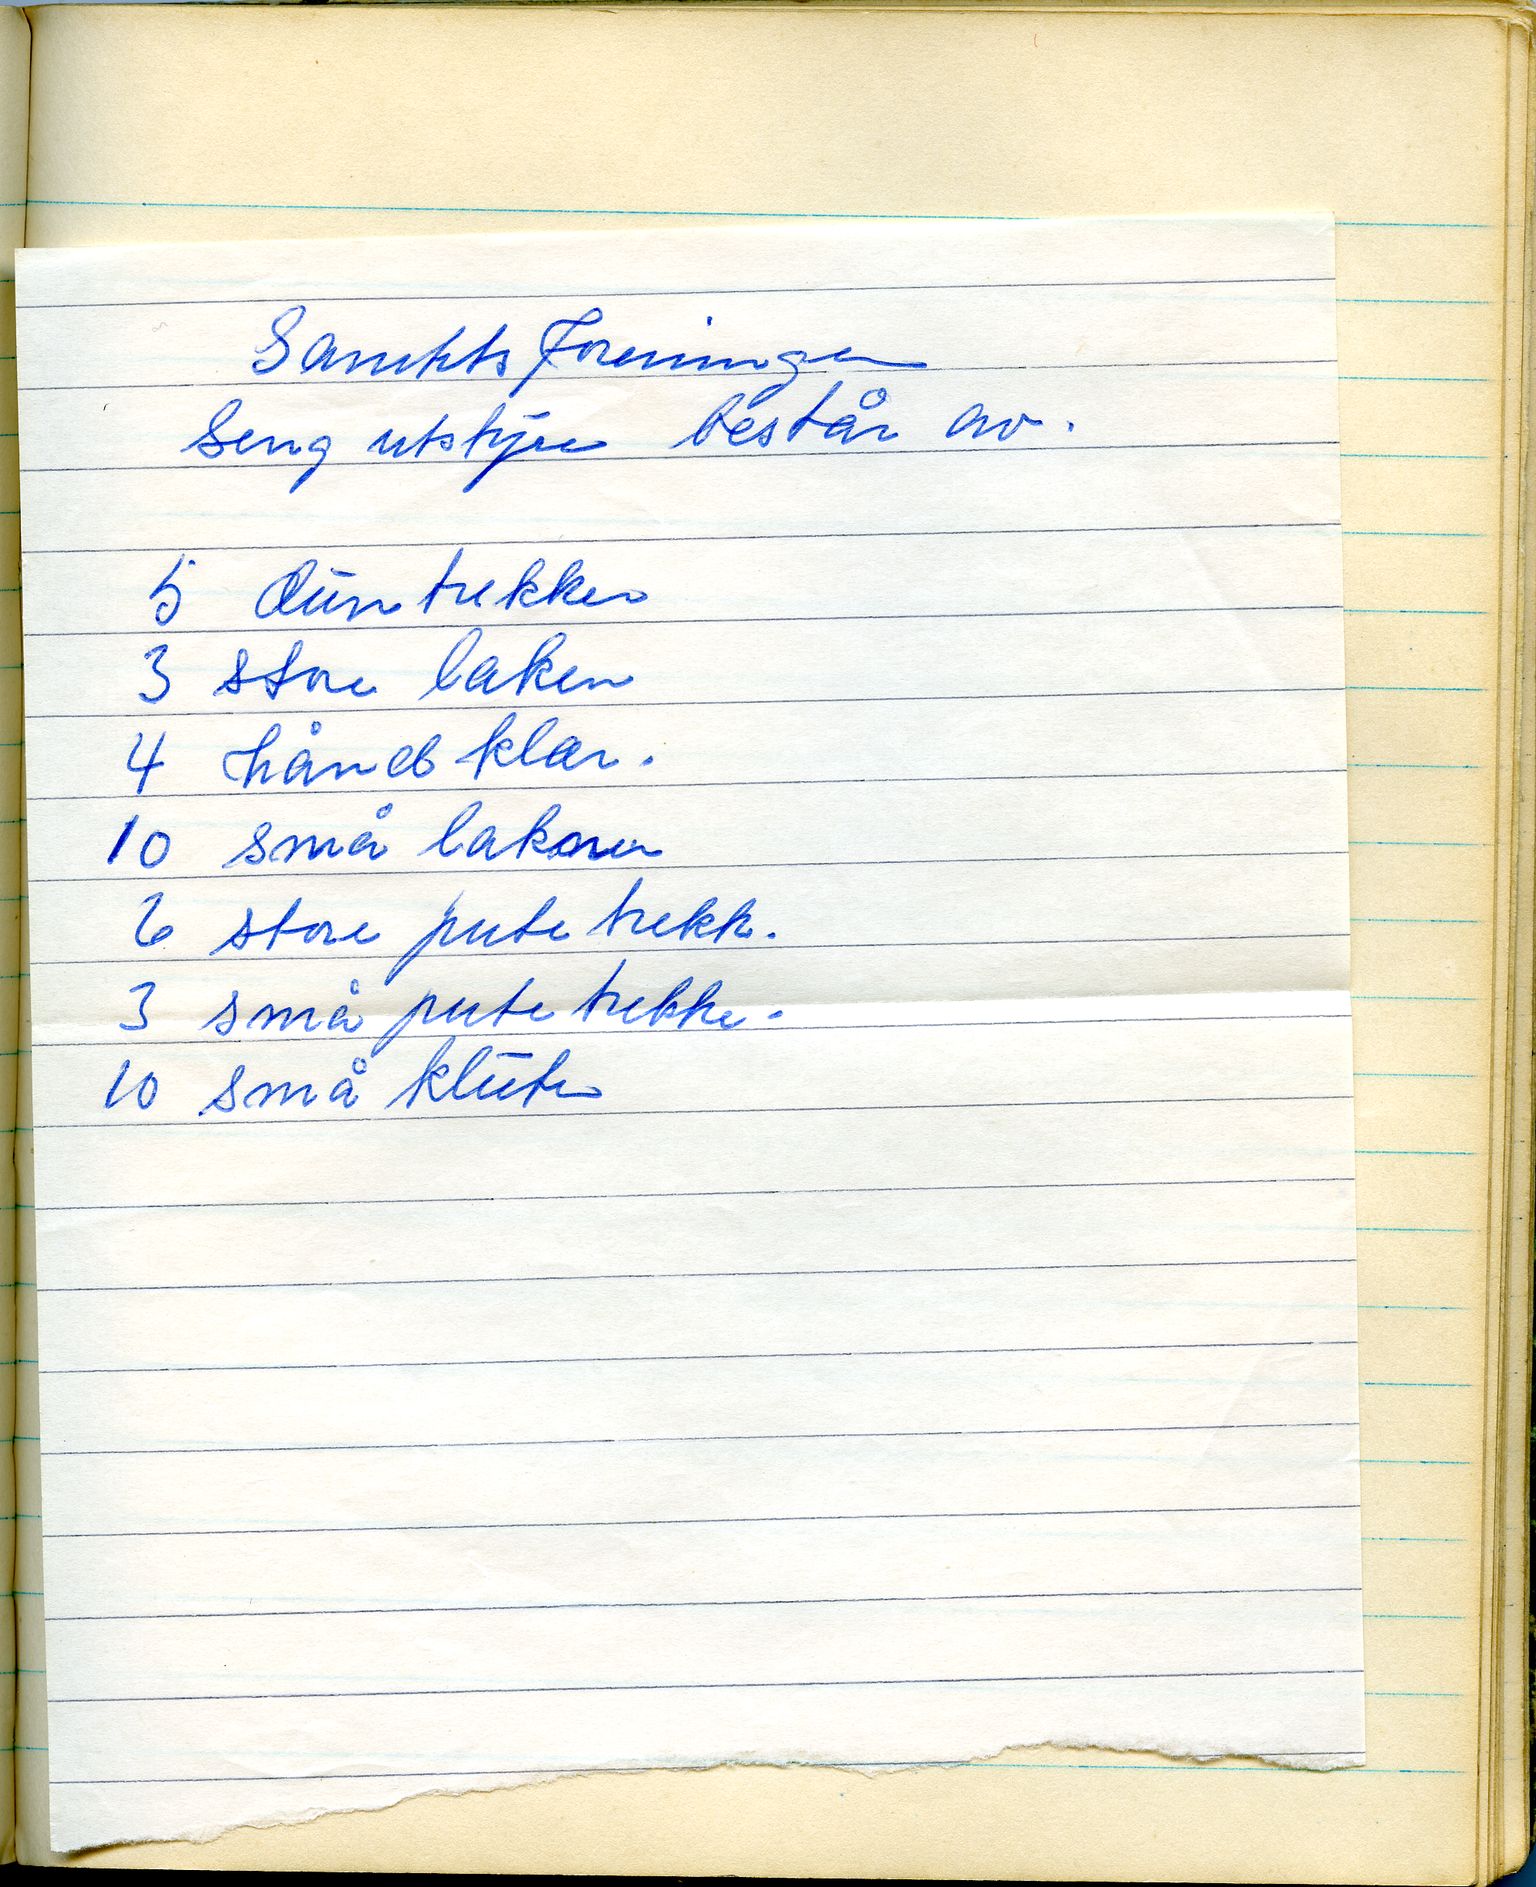 Sanitets Foreningen
Seng utstyre består av.
5 dun trekker
3 store laken
4 hånd klær.
10 små lakner
6 store pute trekk.
3 små pute trekke.
10 små kluter